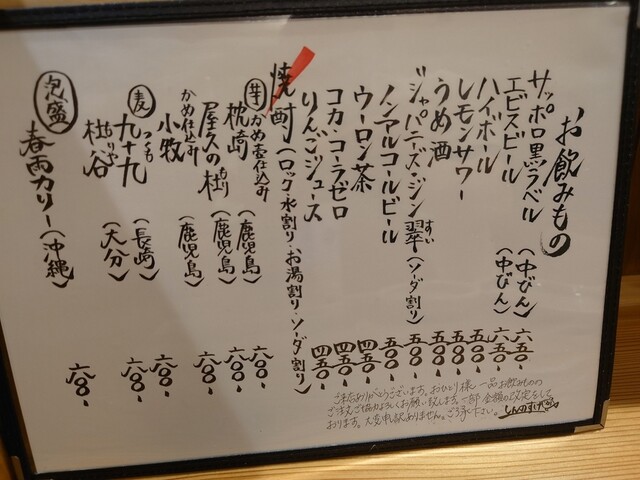 お飲みもの
サッポロ黒ラベル (中びん) 六五〇
エビスビール (中びん) 六五〇
ハイボール 五〇〇
レモンサワー 五〇〇
うめ酒 五〇〇
ジャパニーズ・ジン 翠 すい (ソーダ割り) 五〇〇
ノンアルコールビール 五〇〇
ウーロン茶 四五〇
コカ・コーラゼロ 四五〇
りんごジュース 四五〇
焼酎 (ロック・水割り・お湯割り・ソーダ割り)
芋 かめ壺仕込み
枕崎 (鹿児島) 六〇〇
屋久の杜 もり (鹿児島) 六〇〇
かめ仕込み
小牧 (鹿児島) 六〇〇
麦 九十九 つくも (長崎) 六〇〇
杜谷 もりや (大分) 六〇〇
泡盛 春雨カリー (沖縄) 六〇〇
ご来店ありがとうございます。おひとり様 一品お飲みものの
ご注文ご協力よろしくお願い致します。一部 金額の改定をして
おります。大変申し訳ありません。ご了承ください。しんのすけ